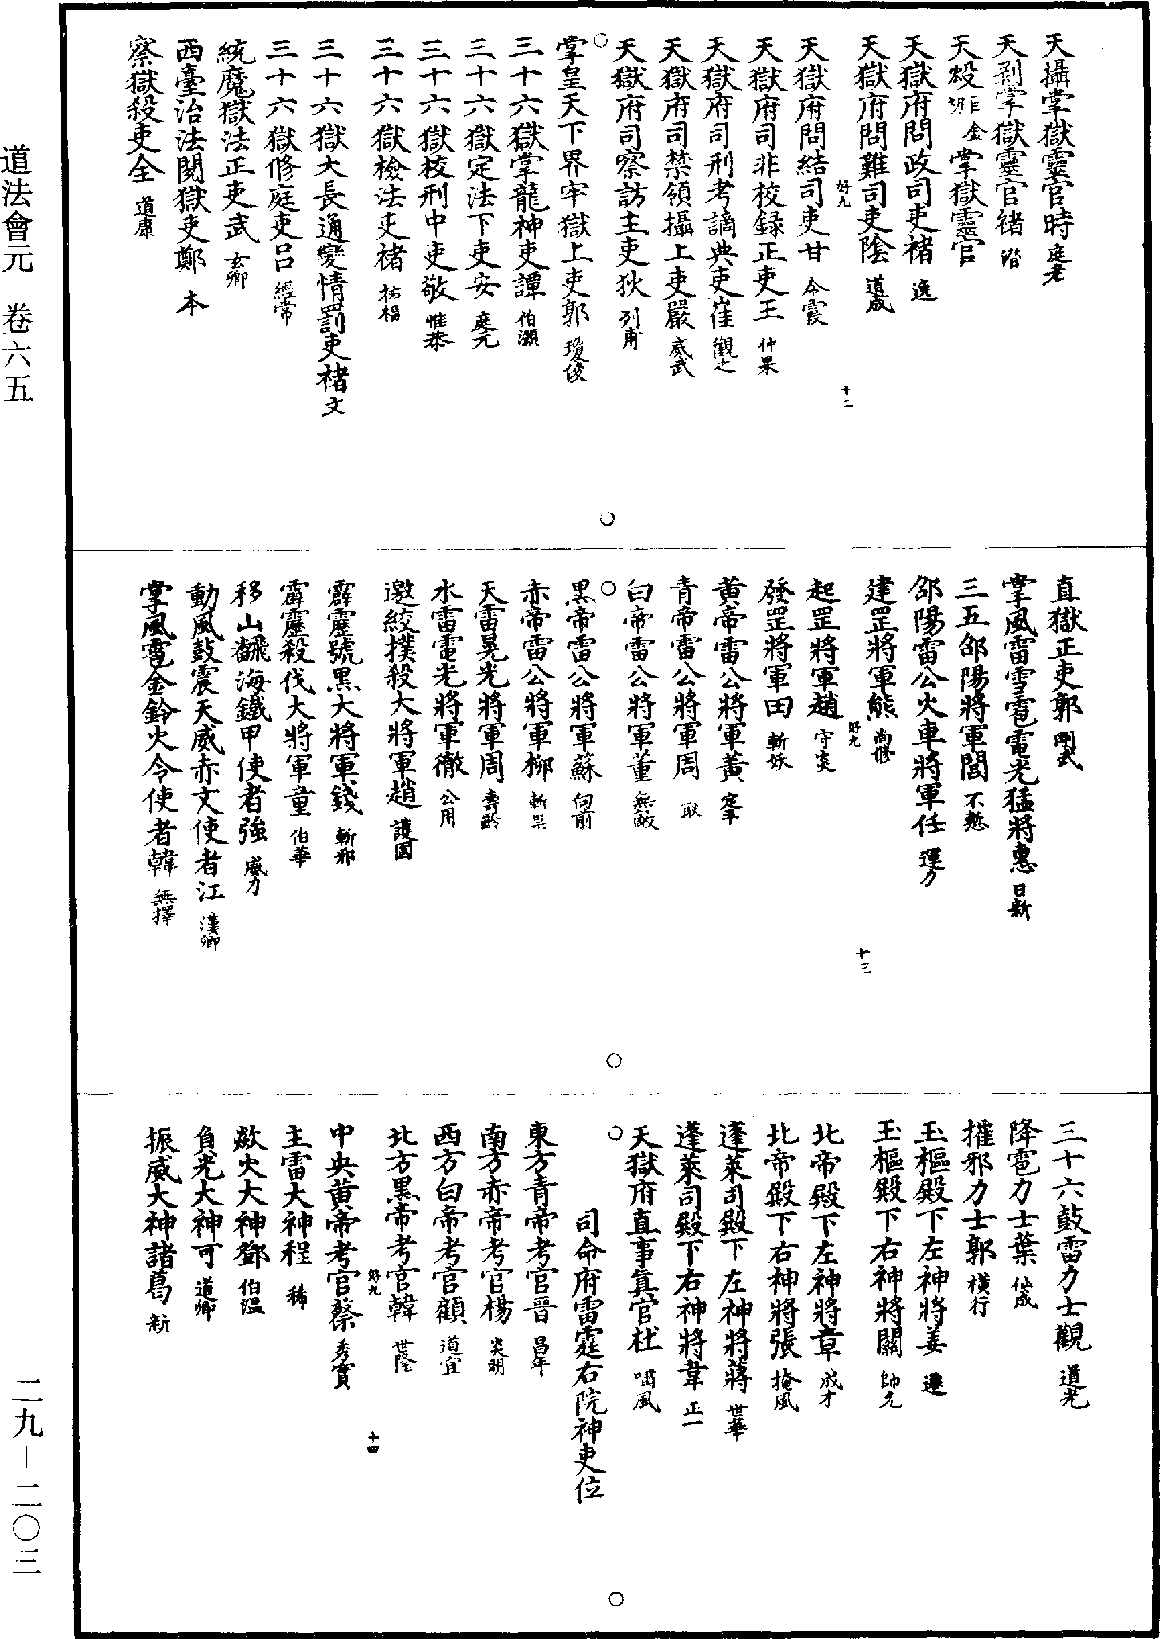 天攝掌獄靈官時庭老
天剥掌獄靈官禇
天殺 掌獄靈官
天獄府問政司吏禇逸
天獄府問難司吏陰道成
天獄府問結司吏甘令霞
天獄府司非校録正吏王仲果
天獄府司刑考謫典吏崔觀之
天獄府司禁領攝上吏嚴威武
天獄府司察訪主吏狄列甫
掌皇天下界牢獄上吏郭瓊俊
三十六獄掌龍神吏譚伯灝
三十六獄定法下吏安庭元
三十六獄校刑中吏敬惟恭
三十六獄檢法吏禇
三十六獄大長通變情罰吏禇文
三十六獄修庭吏呂經常
統魔獄法正吏武玄卿
西臺治法閱獄吏鄭本
察獄殺吏全道康
直獄正吏郭剛武
掌風雷雲雹電光猛將惠日新
三五邵陽將軍閻不愁
邵陽雷公火車將軍任運力
建罡將軍熊尚修
起罡將軍趙守炎
發罡將軍田斬妖
黄帝雷公將軍黄定平
青帝雷公將軍周取
白帝雷公將軍董無敵
黑帝雷公將軍蘇向前
赤帝雷公將軍柳
天雷晃光將軍周壽齡
水雷電光將軍徹公用
邀絞撲殺大將軍趙護國
霹靂號黑大將軍錢斬邪
霹靂殺伐大將軍童伯華
移山飜海鐵甲使者強威力
動風鼓震天威赤文使者江漢卿
掌風雹金鈴火令使者韓無擇
三十六鼓雷力士觀道光
降雹力士葉仙成
摧邪力士郭横行
玉樞殿下左神將姜遷
玉樞殿下右神將關帥允
北帝殿下左神將章成才
北帝殿下右神將張掩風
蓬萊司殿下左神將蔣世華
蓬萊司殿下右神將韋正一
天獄府直事真官杜嘯風
司命府雷霆右院神吏位
東方青帝考官晉昌年
南方赤帝考官楊炎明
西方白帝考官顧道宜
北方黑帝考官韓世隆
中央黄帝考官蔡秀實
主雷大神程稀
歘火大神鄧伯温
負光大神可道卿
振威大神諸葛新
好九
十二
好九
十三
好九
十四
道法會元 卷六五
二九—二〇三